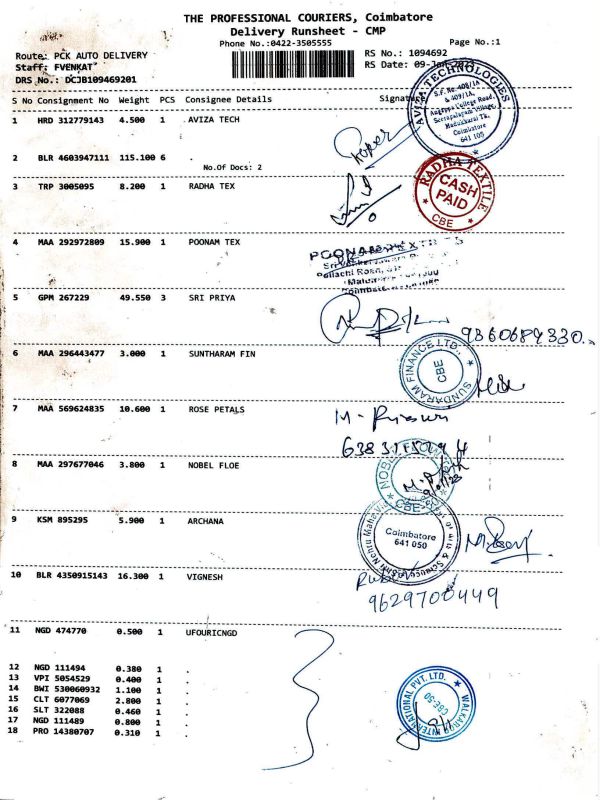 THE PROFESSIONAL COURIERS, Coimbatore
Delivery Runsheet - CMP
Phone No.:0422-3505555
Page No.:1
Route: PCK AUTO DELIVERY
RS No.: 1094692
Staff: FVENKAT
RS Date: 09-Jan-2023
DRS No.: DCJB109469201
S No Consignment No Weight PCS Consignee Details Signature
1 HRD 312779143 4.500 1 AVIZA TECH
AVIZA TECHNOLOGIES
S.F. No.408/1A,
& 409/1A,
Coimbatore
641 105
2 BLR 4603947111 115.100 6 .
No.Of Docs: 2
3 TRP 3005095 8.200 1 RADHA TEX
RADHA TEXTILE
CASH
PAID
CBE
4 MAA 292972809 15.900 1 POONAM TEX
5 GPM 267229 49.550 3 SRI PRIYA
9360684330.
6 MAA 296443477 3.000 1 SUNTHARAM FIN
SUNDARAM FINANCE LTD.,
CBE
7 MAA 569624835 10.600 1 ROSE PETALS
8 MAA 297677046 3.800 1 NOBEL FLOE
CBE
9 KSM 895295 5.900 1 ARCHANA
Coimbatore
641 050
10 BLR 4350915143 16.300 1 VIGNESH
9629700449
11 NGD 474770 0.500 1 UFOURICNGD
12 NGD 111494 0.380 1 .
13 VPI 5054529 0.400 1 .
14 BWI 530060932 1.100 1 .
15 CLT 6077069 2.800 1 .
16 SLT 322088 0.460 1 .
17 NGD 111489 0.800 1 .
18 PRO 14380707 0.310 1 .
WALKAROO INTERNATIONAL PVT. LTD.
CBE-50